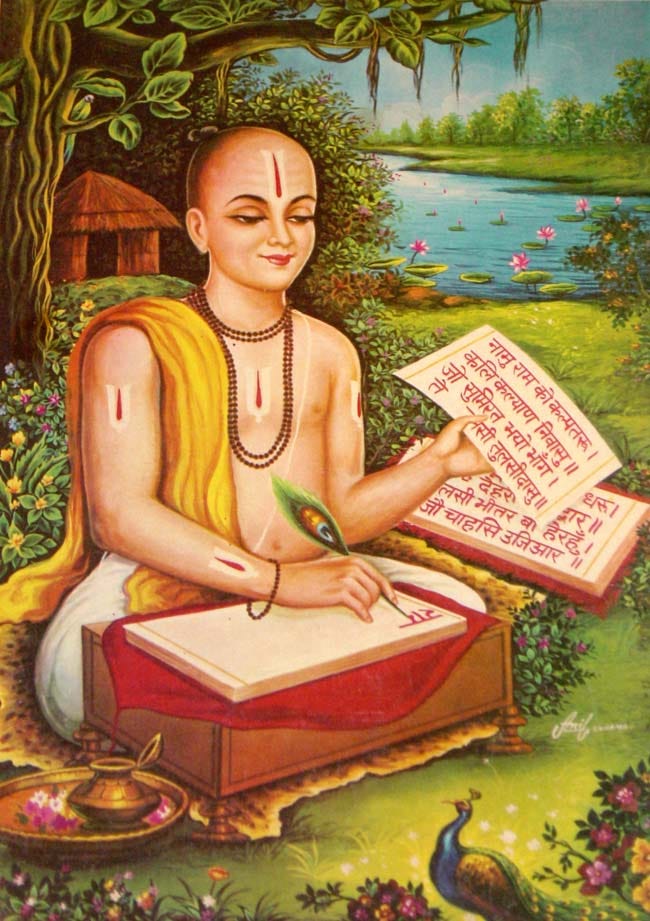 नामु राम को कल्पतरू ।
कलि कल्याण निवासु ॥
जौ सुमिरत भयो भाँग ।
सी तुलसीदासु ॥
धरू ।
देहर ार ॥
लसी भीतर बा हेरहुँ ।
जौ चाहासि उजिआर ॥
राम
Anil